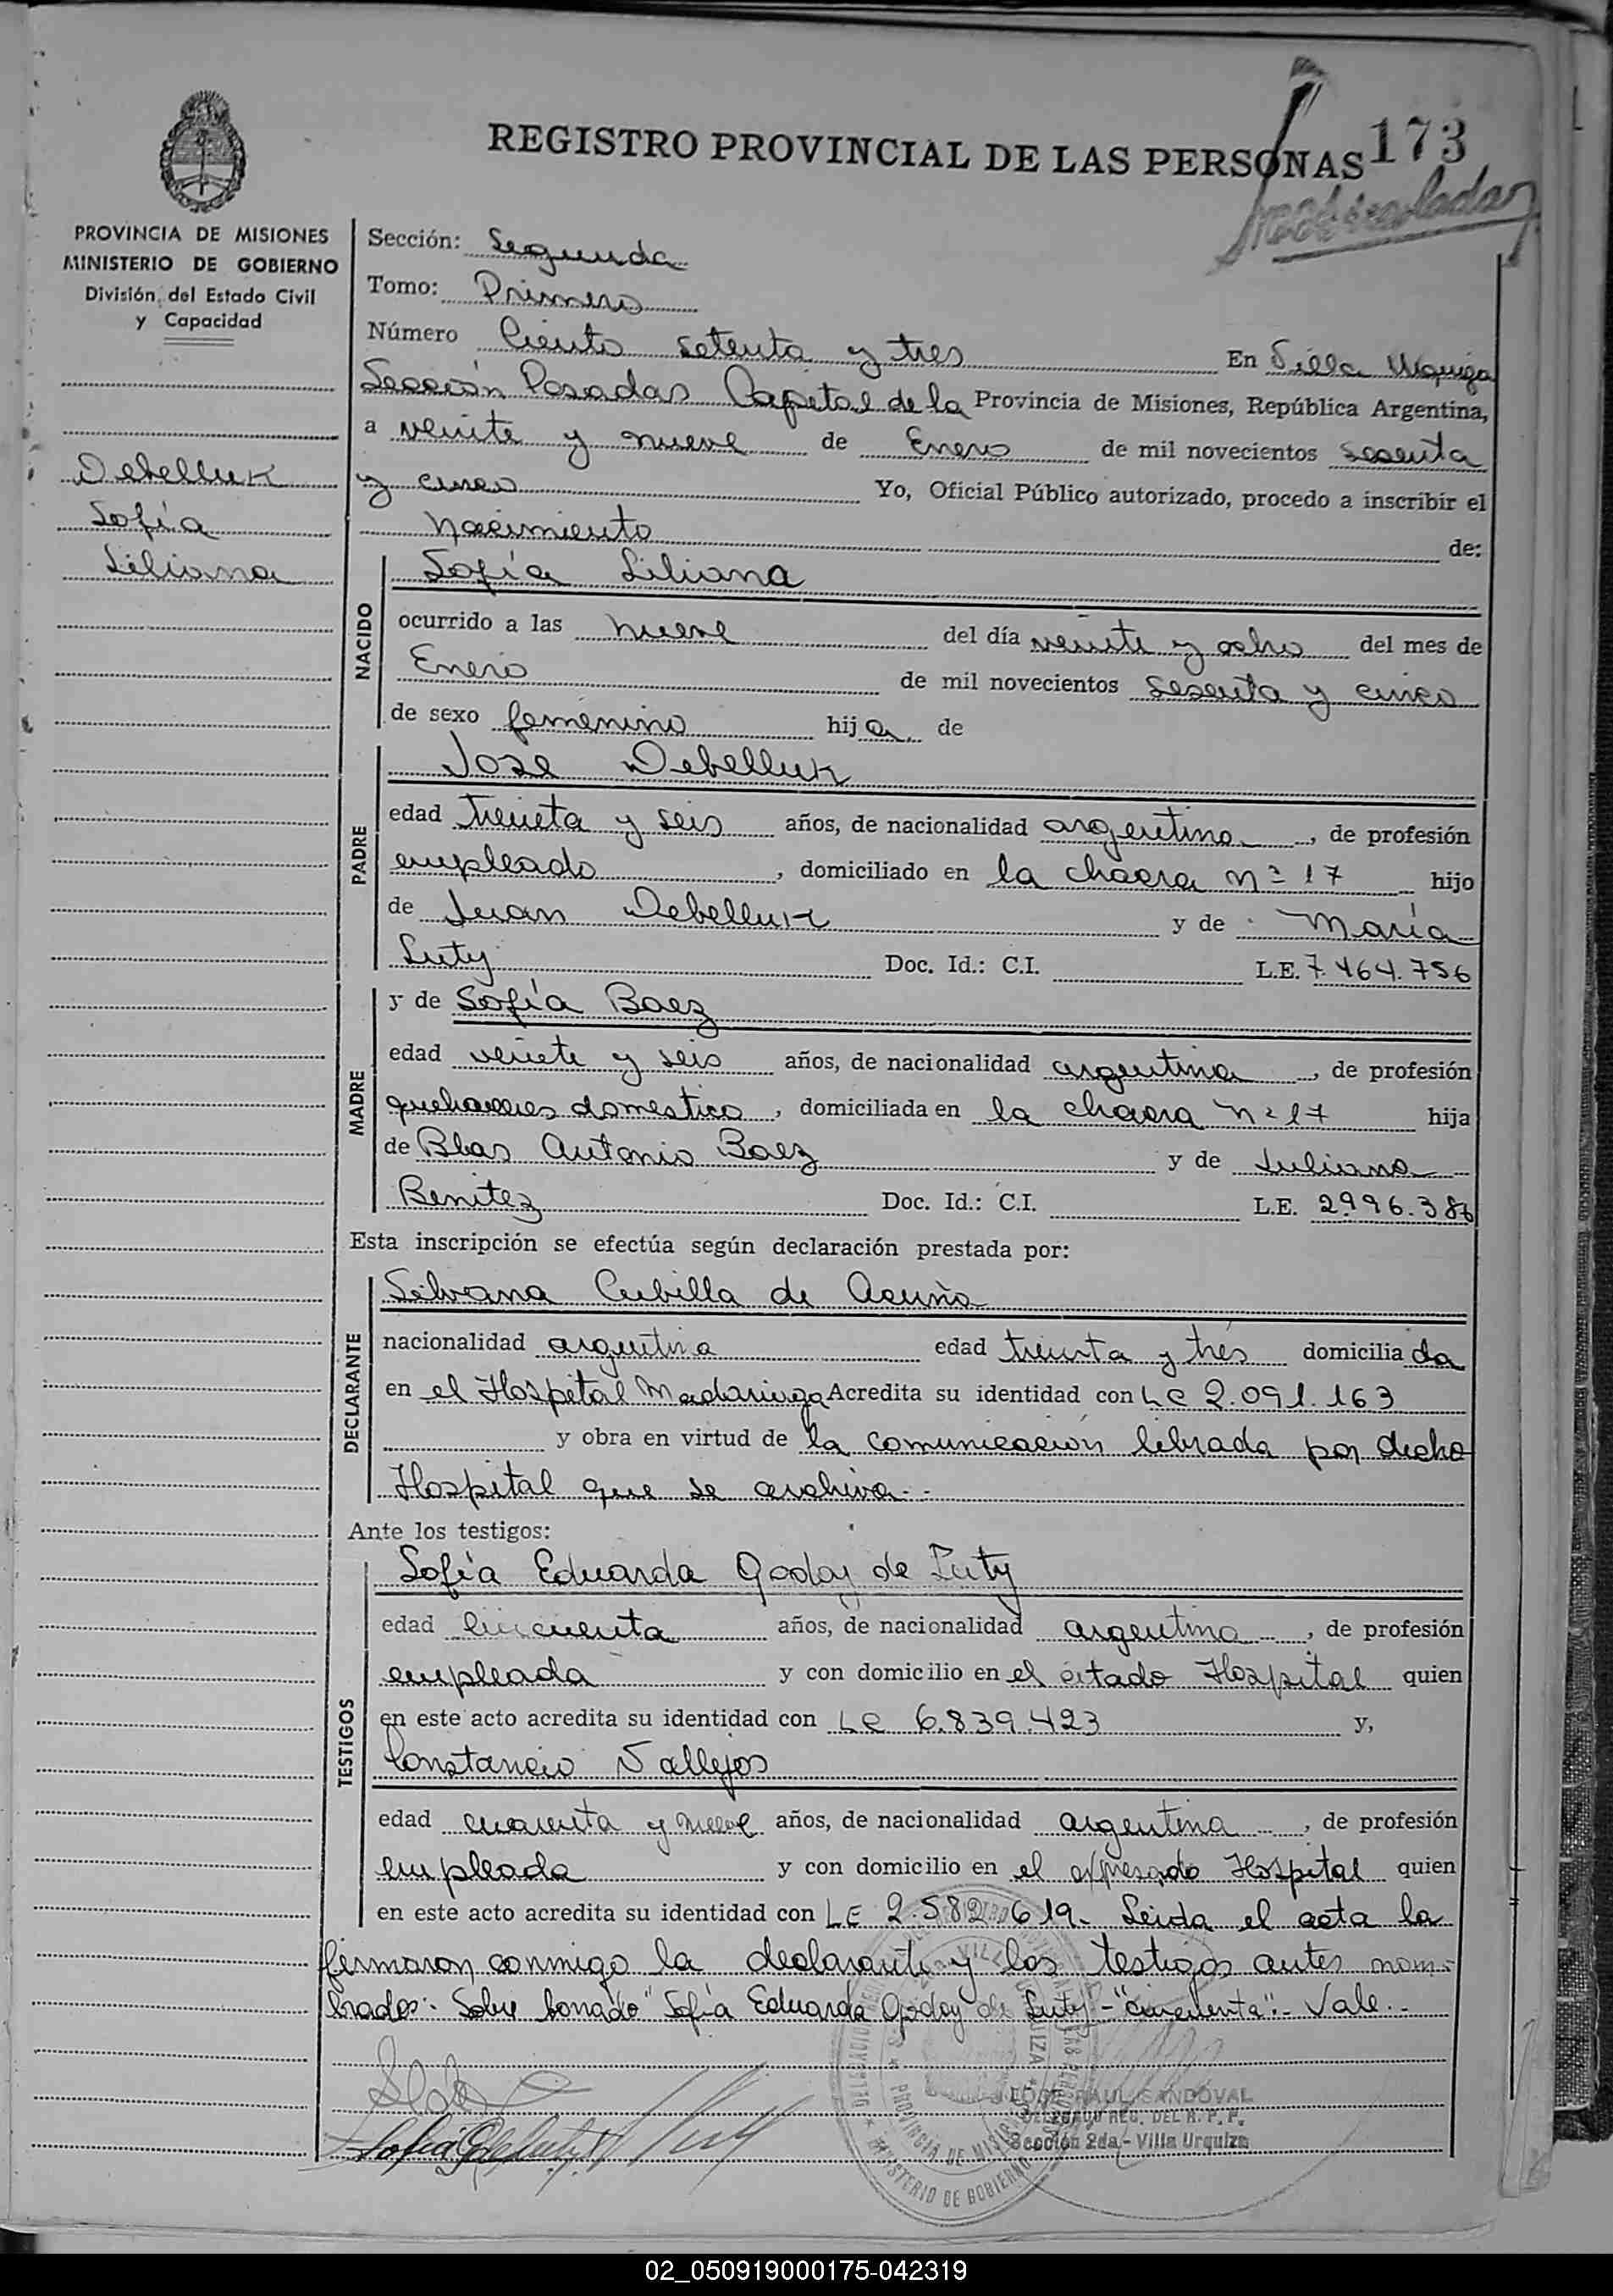 REGISTRO PROVINCIAL DE LAS PERSONAS 173
PROVINCIA DE MISIONES
MINISTERIO DE GOBIERNO
División del Estado Civil
y Capacidad
Debelluk
Sofía
Liliana
Sección: Segunda
Tomo: Primero
Número Ciento setenta y tres En Villa Urquiza
Sección Posadas Capital de la Provincia de Misiones, República Argentina,
a veinte y nueve de Enero de mil novecientos sesenta
y cinco Yo, Oficial Público autorizado, procedo a inscribir el
nacimiento de:
NACIDO
Sofía Liliana
ocurrido a las nueve del día veinte y ocho del mes de
Enero de mil novecientos sesenta y cinco
de sexo femenino hija de
PADRE
José Debelluk
edad treinta y seis años, de nacionalidad argentina, de profesión
empleado, domiciliado en la chacra nº 17 hijo
de Juan Debelluk y de María
Luty Doc. Id.: C.I. L.E. 7.464.756
MADRE
y de Sofía Baez
edad veinte y seis años, de nacionalidad argentina, de profesión
quehaceres domestico, domiciliada en la chacra nº 17 hija
de Blas Antonio Baez y de Juliana
Benitez Doc. Id.: C.I. L.E. 2.996.386
Esta inscripción se efectúa según declaración prestada por:
DECLARANTE
Silvana Cubilla de Acuña
nacionalidad argentina edad treinta y tres domiciliada
en el Hospital Madariaga Acredita su identidad con LC 2.091.163
y obra en virtud de la comunicación librada por dicho
Hospital que se archiva.-
Ante los testigos:
TESTIGOS
Sofía Eduarda Godoy de Luty
edad cincuenta años, de nacionalidad argentina, de profesión
empleada y con domicilio en el citado Hospital quien
en este acto acredita su identidad con LC 6.839.423 y,
Constancio Vallejos
edad cuarenta y nueve años, de nacionalidad argentina, de profesión
empleada y con domicilio en el expresado Hospital quien
en este acto acredita su identidad con LE 2.582.619- Leida el acta la
firmaron conmigo la declarante y los testigos antes nom-
brados.- Sobre borrado "Sofía Eduarda Godoy de Luty - "cincuenta".- Vale.-
JOSE RAUL SANDOVAL
DELEGADO REG. DEL R. P. P.
Sección 2da.- Villa Urquiza
PROVINCIA DE MISIONES
MINISTERIO DE GOBIERNO
02_050919000175-042319